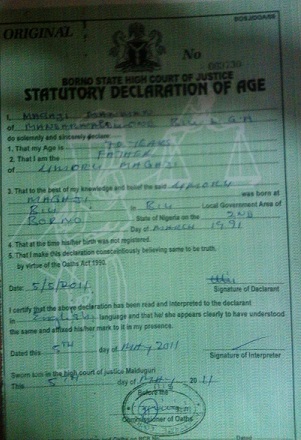 BOSJ/DOA/06
ORIGINAL
No
BORNO STATE HIGH COURT OF JUSTICE
STATUTORY DECLARATION OF AGE
I, MAGAJI
of BIU L.G.A
do solemnly and sincerely declare
1. That my Age is YEARS
2. That I am the FATHER
of MAGAJI
3. That to the best of my knowledge and belief the said
MAGAJI was born at
BIU in BIU Local Government Area of
BORNO State of Nigeria on the 2ND
Day of MARCH 1991
4. That at the time his/her birth was not registered.
5. That I make this declaration conscientiously believing same to be true.
by virtue of the Oaths Act 1990.
Date: 5/5/2011
Signature of Declarant
I certify that the above declaration has been read and interpreted to the declarant
in English language and that he/ she appears clearly to have understood
the same and affixed his/her mark to it in my presence.
Dated this 5TH day of MAY 2011
Signature of Interpreter
Sworn to in the high court of justice Maiduguri
This 5TH day of MAY 2011
Before me
Commissioner of Oaths